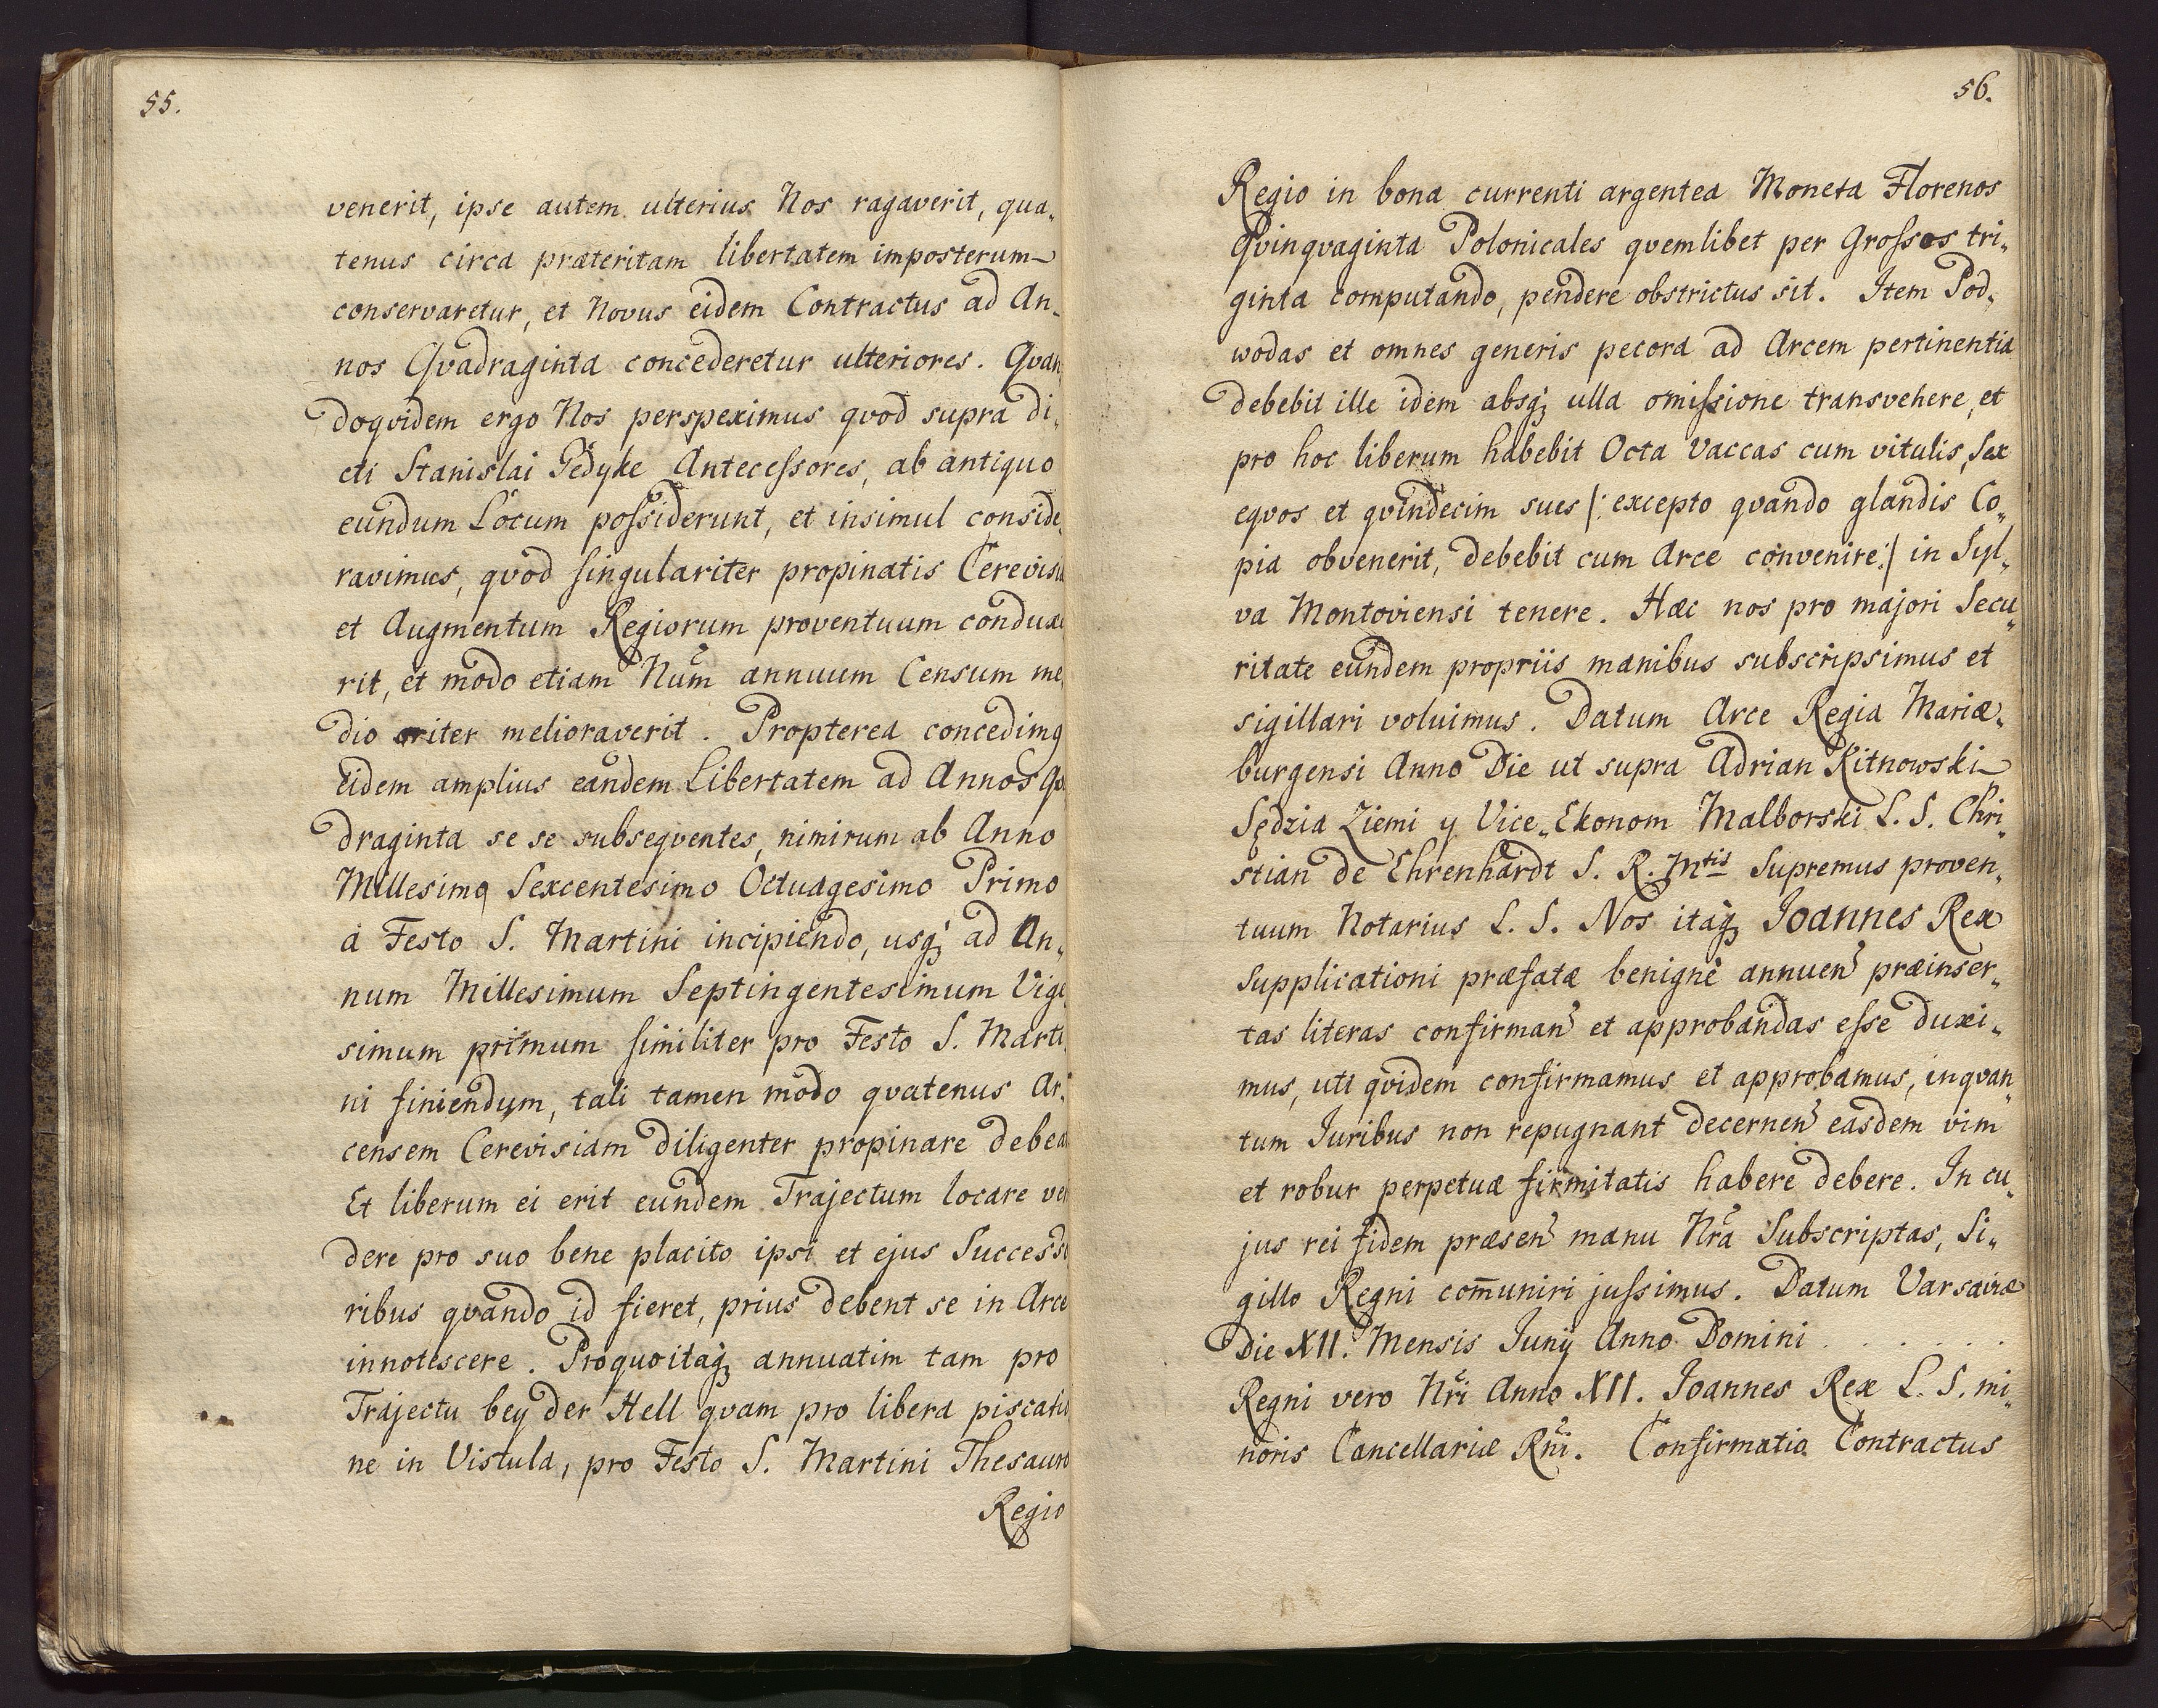 55.
venerit, ipse autem ulterius Nos ragaverit, qua„
tenus circa præteritam libertatem imposterum
conservaretur, et Novus eidem Contractus ad An„
nos Qvadraginta concederetur ulteriores. Qvan„
doqvidem ergo Nos perspeximus qvod supra di„
cti Stanislai Pedyke Antecessores, ab antiquo
eundum Locum possiderunt, et insimul conside„
ravimus, qvod singulariter propinatis Cerevisia
et Augmentum Regiorum proventuum conduxe
rit, et modo etiam Num annuum Censum me„
dio criter melioraverit. Propterea concedimq
Eidem amplius eandem Libertatem ad Annos Qv
draginta se se subseqventes, nimirum ab Anno
Millesimo Sexcentesimo Octuagesimo Primo
à Festo S. Martini incipiendo, usq; ad An„
num Millesimum Septingentesimum Vige
simum primum similiter pro Festo S. Marti„
ni finiendym, tali tamen modo qvatenus Ar„
censem Cerevisiam diligenter propinare debea
Et liberum ei erit eundem Trajectum locare ven
dere pro suo bene placito ipsi et ejus Successo
ribus qvando id fieret, prius debent se in Arce
innotescere. Proquoitaq; annuatim tam pro
Trajectu bey der Hell qvam pro libera piscatio
ne in Vistula, pro Festo S. Martini Thesauro
Regio
56.
Regio in bona currenti argentea Moneta Florenos
Qvinqvaginta Polonicales qvemlibet per Grossos tri„
ginta computando, pendere obstrictus sit. Item Pod„
wodas et omnes generis pecora ad Arcem pertinentia
debebit ille idem absq; ulla omissione transvehere, et
pro hoc liberum habebit Octa Vaccas cum vitulis, Sex
eqvos et qvindecim sues /: excepto qvando glandis Co„
pia obvenerit, debebit cum Arce convenire :/ in Syl„
va Montoviensi tenere. Hæc nos pro majori Secu„
ritate eundem propriis manibus subscripsimus et
sigillari voluimus. Datum Arce Regia Mariæ„
burgensi Anno Die ut supra Adrian Kitnowski
Sędzia Ziemi y Vice„Ekonom Malborski L. S. Chri„
stian de Ehrenhardt S. R. Mtis Supremus proven„
tuum Notarius L. S. Nos itaq; Joannes Rex
Supplicationi præfatæ benignè annuen præinser„
tas literas confirman et approbandas esse duxi„
mus, uti qvidem confirmamus et approbamus, inqvan„
tum Juribus non repugnant decernen easdem vim
et robur perpetuæ firmitatis habere debere. In cu„
jus rei fidem præsen manu Nra Subscriptas, Si„
gillo Regni com̄uniri jussimus. Datum Varsaviæ
Die XII. Mensis Junij Anno Domini . . . . . .
Regni vero Nri Anno XII. Joannes Rex L. S. mi„
noris Cancellariæ Rni. Confirmatio Contractus